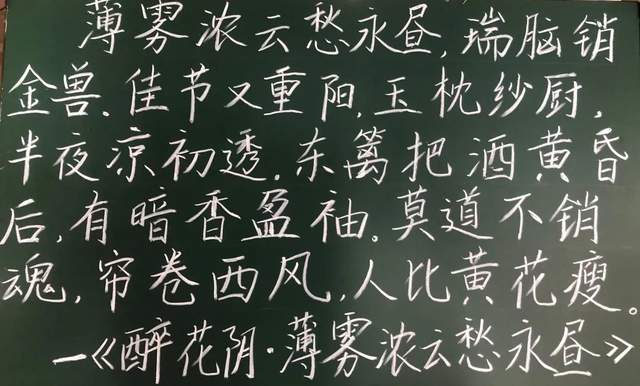 薄雾浓云愁永昼,瑞脑销
金兽.佳节又重阳,玉枕纱厨,
半夜凉初透.东篱把酒黄昏
后,有暗香盈袖。莫道不销
魂,帘卷西风,人比黄花瘦。
—《醉花阴·薄雾浓云愁永昼》